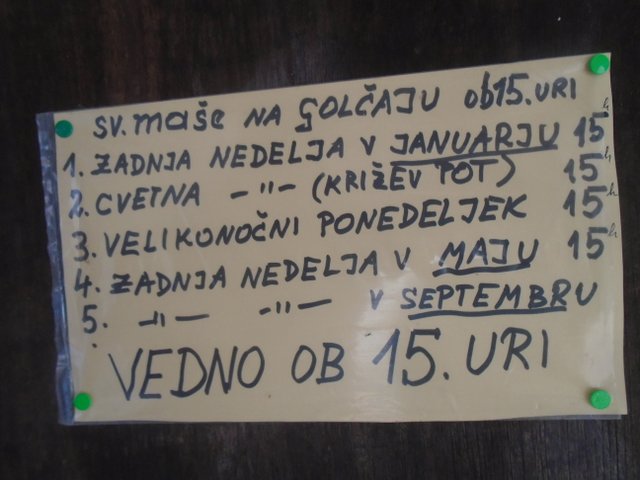 SV. MAŠE NA GOLČAJU OB 15. URI
1. ZADNJA NEDELJA V JANUARJU 15h
2. CVETNA -"- (KRIŽEV POT) 15h
3. VELIKONOČNI PONEDELJEK 15h
4. ZADNJA NEDELJA V MAJU 15h
5. -"- -"- V SEPTEMBRU
VEDNO OB 15. URI